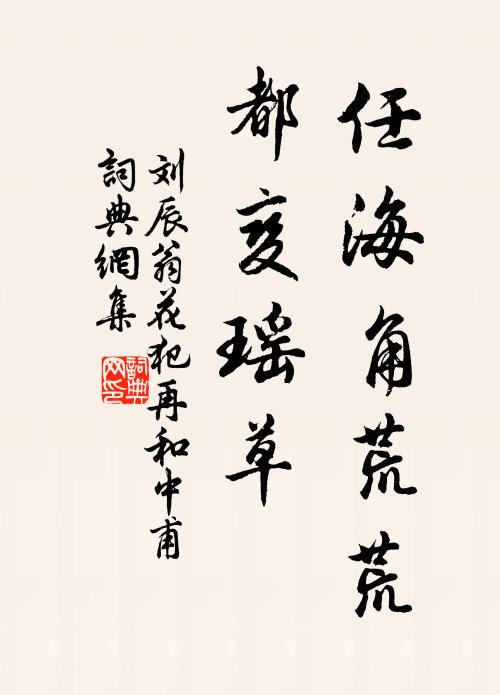 任海角荒荒
都变瑶草
刘辰翁花犯再和中甫
詞典網集
詞典网印